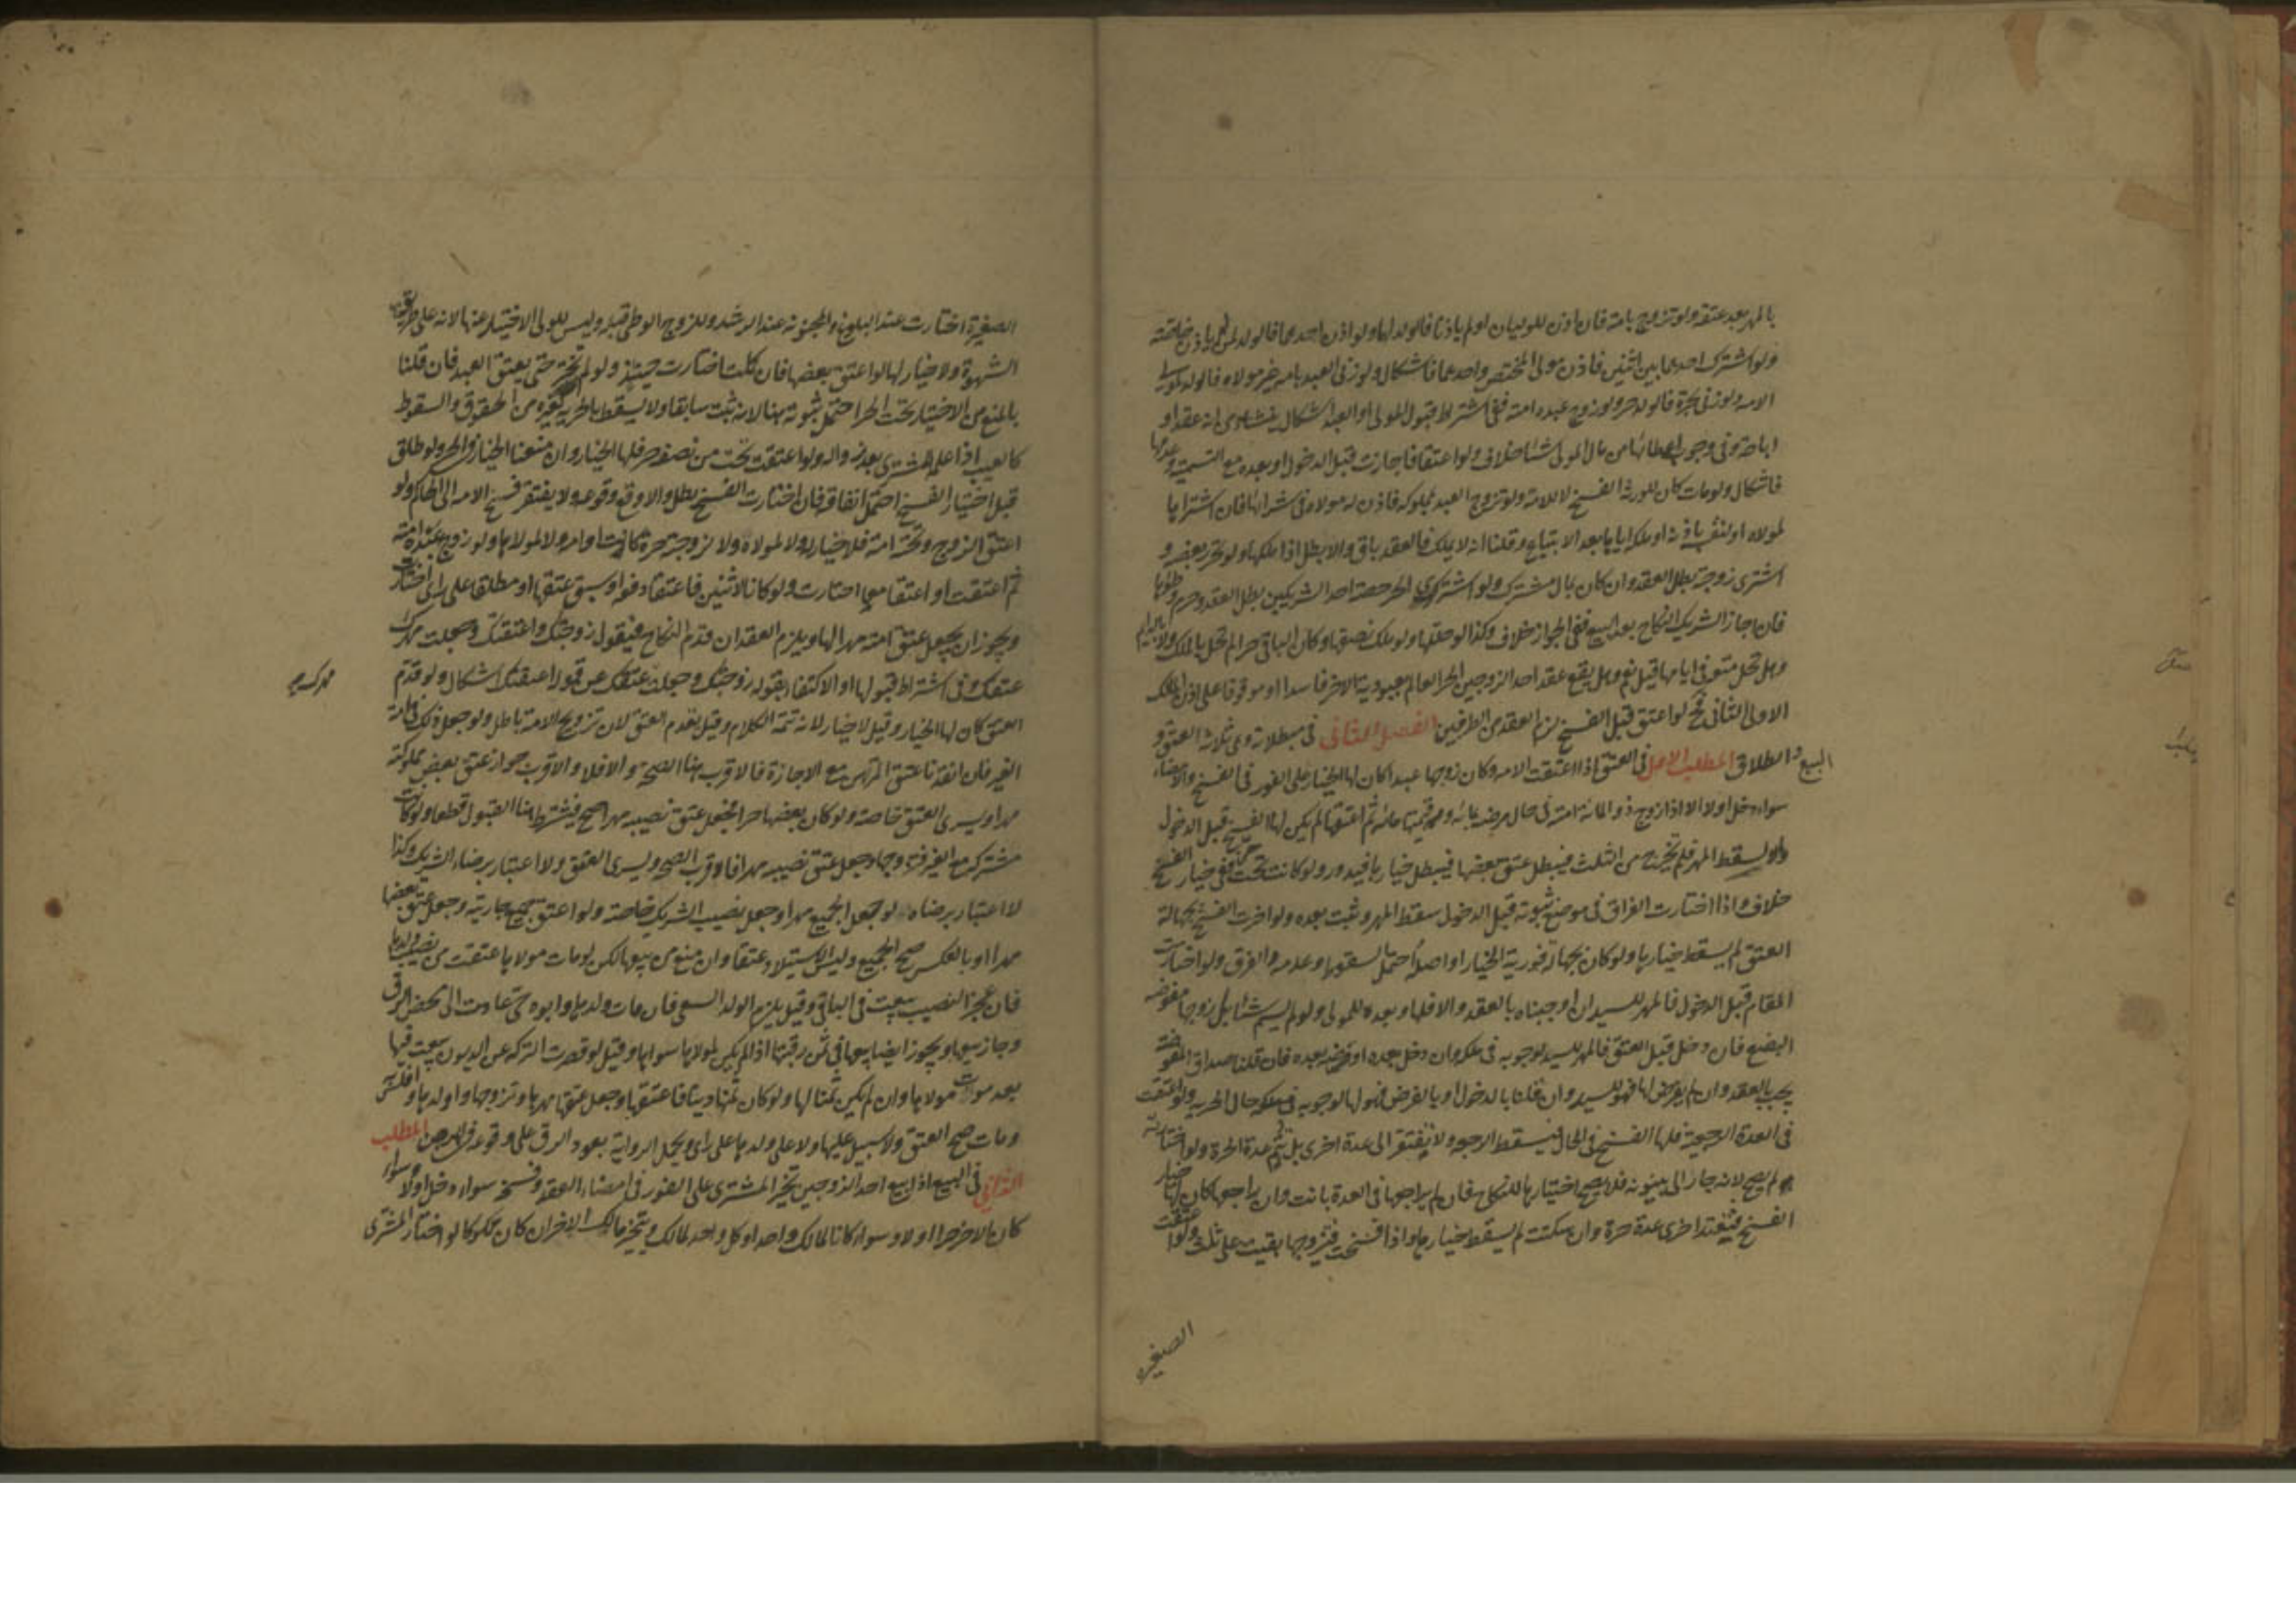 بالمهر بعد عتقه ولو تزوج بامة فان اذن الموليان او لم ياذنا فالولد لهما ولو اذن احدهما فالولد لمن لم ياذن خاصته
ولو اشترك احدهما بين اثنين فاذن مولى المختص واحدهما فاشكال ولو زنى العبد بامه غير مولاه فالولد لمولى
الامه ولو زنى بحرة فالولد حر ولو زوج عبده امته ففى اشتراط قبول المولى او العبد اشكال ينشاء من انه عقد او
اباحة وفى وجوب اعطائها من مال المولى شئا خلاف ولو اعتقا فاجازت قبل الدخول او بعده مع التسمية وعدمها
فاشكال ولو مات كان للورثه الفسخ لا للامة ولو تزوج العبد بمملوكه فاذن له مولاه فى شرائها فان اشتراها
لمولاه او لنفسه باذنه او ملكه اياها بعد الابتياع وقلنا انه لا يملك فالعقد باق والا بطل اذا ملكها ولو تحرر بعضه و
اشترى زوجته بطل العقد وان كان بمال مشترك ولو اشترى الحر حصة احد الشريكين بطل العقد وحرم وطؤها
فان اجاز الشريك النكاح بعد البيع ففى الجواز خلاف وكذا لو حللها ولو ملك نصفها وكان الباقى حرا لم تحل بالملك ولا بالدايم
وهل تحل متعة فى ايامها قيل نعم وهل يقع عقد احد الزوجين الحر العالم بعبودية الاخر فاسدا او موقوفا على اذن المالك
الاولى الثانى فح لو اعتق قبل الفسخ لزم العقد من الطرفين الفصل الثانى فى مبطلاته وهى ثلاثه العتق و
البيع والطلاق المطلب الاول فى العتق اذا اعتقت الامه وكان زوجها عبدا كان لها الخيار على الفور فى الفسخ والامضاء
سواء دخل اولا الا اذا زوج ذو المائة امته فى حال مرضه بمائه وقيمتها مائه ثم اعتقها لم يكن لها الفسخ قبل الدخول
والا لسقط المهر فلم تخرج من الثلث فيبطل عتق بعضها فيبطل خيارها فيدور ولو كانت تحت حر ففى خيار الفسخ
خلاف واذا اختارت الفراق فى موضع ثبوته قبل الدخول سقط المهر وثبت بعده ولو اخرت الفسخ بجهالة
العتق لم يسقط خيارها ولو كان بجهالة فورية الخيار او اصله احتمل السقوط وعدمه والفرق ولو اختارت
المقام قبل الدخول فالمهر للسيد ان اوجبناه بالعقد والا فلها وبعده للمولى ولو لم يسم شئا بل زوجها مفوضه
البضع فان دخل قبل العتق فالمهر للسيد لوجوبه فى ملكه وان دخل بعده او فرضه بعده فان قلنا صداق المفوضة
يجب بالعقد وان لم يفرض لها فهو للسيد وان قلنا بالدخول او بالفرض فهو لها لوجوبه فى ملكه حال الحريه ولو اعتقت
فى العدة الرجعية فلها الفسخ فى الحال فيسقط الرجعه ولا تفتقر الى عدة اخرى بل تتم عدة الحرة ولو اختارته
لم يصح لانه جار الى بينونه فلا يصح اختيارها للنكاح فان لم يراجعها فى العدة بانت وان راجعها كان لها خيار
الفسخ فتعتد اخرى عدة حرة وان سكتت لم يسقط خيارها واذا فسخت فتزوجها بقيت على ثلث ولو اعتقت
الصغيره
الصغيرة اختارت عند البلوغ والمجنونه عند الرشد وللزوج الوطى قبله وليس للولى الاختيار عنها لانه على طريق
الشهوة ولا خيار لها لو اعتق بعضها فان كملت اختارت حينئذ ولو لم تختر حتى يعتق العبد فان قلنا
بالمنع من الاختيار تحت الحر احتمل ثبوته هنا لانه ثبت سابقا ولا يسقط بالحريه كغيره من الحقوق والسقوط
كالعيب اذا علمه المشترى بعد زواله ولو اعتقت تحت من نصفه حر فلها الخيار وان منعنا الخيار فى الحر ولو طلق
قبل اختيار الفسخ احتمل ايقافه فان اختارت الفسخ بطل والا وقع وقوعه ولا يفتقر فسخ الامه الى الحاكم ولو
اعتق الزوج وتحته امة فلا خيار له ولا لمولاه ولا لزوجته حرة كانت او امه ولا لمولاها ولو زوج عبده امته
ثم اعتقت او اعتقا معا اختارت ولو كانا لاثنين فاعتقا دفعه او سبق عتقها او مطلقا على راى اختارت
ويجوز ان يجعل عتق امته مهرا لها ويلزم العقد ان قدم النكاح فيقول زوجتك واعتقتك وجعلت مهرك
عتقك وفى اشتراط قبولها او الاكتفا بقوله زوجتك وجعلت عتقك عن قوله اعتقتك اشكال ولو قدم
العتق كان لها الخيار وقيل لا خيار لانه تتمة الكلام وقيل يقدم العتق لان تزويج الامة باطل ولو جعل ذلك فى امة
الغير فان انفذنا عتق المرتهن مع الاجازة فالاقرب هنا الصحة والا فلا والاقرب جواز عتق بعض مملوكته
مهرا ويسرى العتق خاصة ولو كان بعضها حرا فجعل عتق نصيبه مهرا صح فيشترط هنا القبول قطعا ولو كانت
مشتركة مع الغير فتزوجها وجعل عتق نصيبه مهرا فالاقرب الصحة ويسرى العتق ولا اعتبار برضاء الشريك وكذا
لا اعتبار برضاه لو جعل الجميع مهرا او جعل نصيب الشريك خاصة ولو اعتق جميع جاريته وجعل عتق بعضها
مهرا او بالعكس صح الجميع وليس الاستيلاد عتقا وان منع من بيعها لكن لو مات مولاها عتقت من نصيب ولدها
فان عجز النصيب سعت فى الباقى وقيل يلزم الولد السعى فان مات ولدها وابوه حى عادت الى محض الرق
وجاز بيعها ويجوز ايضا بيعها فى ثمن رقبتها اذا لم يكن لمولاها سواها وقيل لو قصرت التركه عن الديون بيعت فيها
بعد موت مولاها وان لم يكن ثمنا لها ولو كان ثمنها دينا فاعتقها وجعل عتقها مهرها وتزوجها واولدها وافلس به
ومات صح العتق ولا سبيل عليها ولا على ولدها على راى وتحمل الرواية بعود الرق على وقوعه فى المرض المطلب
الثانى فى البيع اذا بيع احد الزوجين تخير المشترى على الفور فى امضاء العقد وفسخه سواء دخل اولا وسواء
كان الاخر حرا اولا وسواء كانا لمالك واحد او كل واحد لمالك ويتخير مالك الاخر ان كان مملوكا لو اختار المشترى